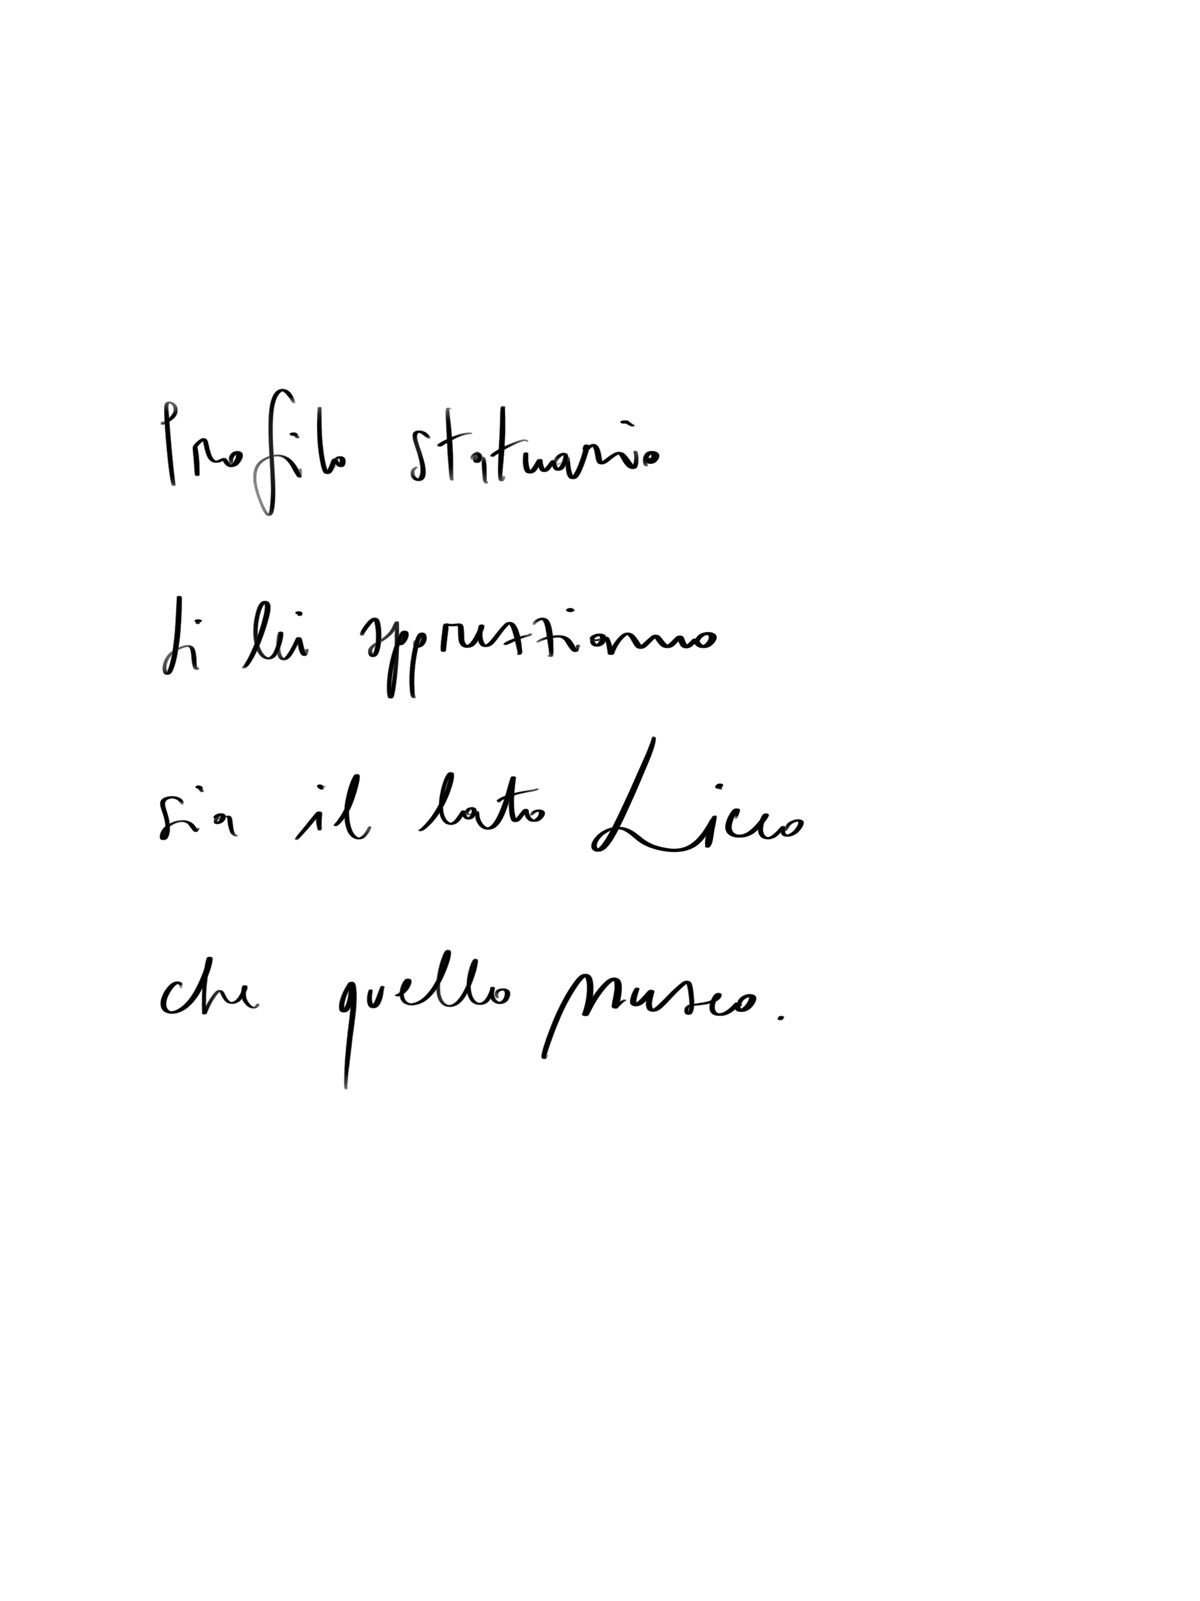 Profilo statuario
di lei apprezziamo
sia il lato Liceo
che quello museo.